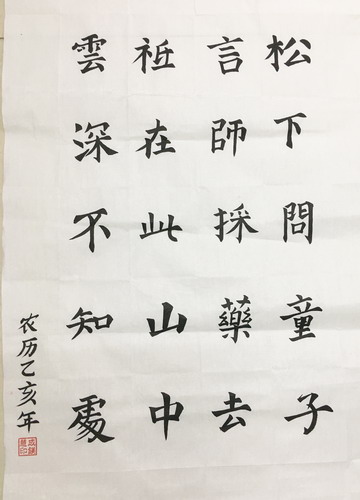 松下問童子
言師採藥去
祗在此山中
雲深不知處
农历乙亥年